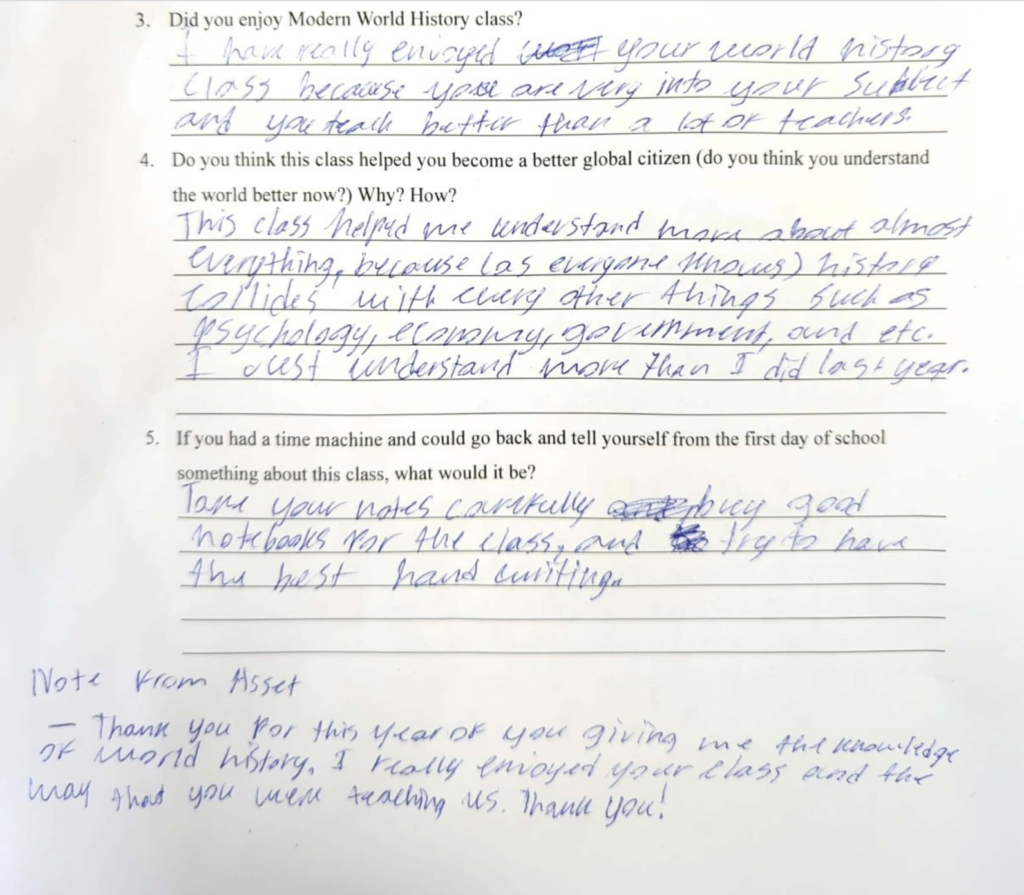 3. Did you enjoy Modern World History class?
I have really enjoyed your world history
class because you are very into your subject
and you teach better than a lot of teachers.
4. Do you think this class helped you become a better global citizen (do you think you understand
the world better now?) Why? How?
This class helped me understand more about almost
everything, because (as everyone knows) history
collides with every other things such as
psychology, economy, government, and etc.
I just understand more than I did last year.
5. If you had a time machine and could go back and tell yourself from the first day of school
something about this class, what would it be?
Take your notes carefully buy good
notebooks for the class, and try to have
the best hand writing.
Note from Asset
— Thank you for this year of you giving me the knowledge
of world history. I really enjoyed your class and the
way that you were teaching us. Thank you!